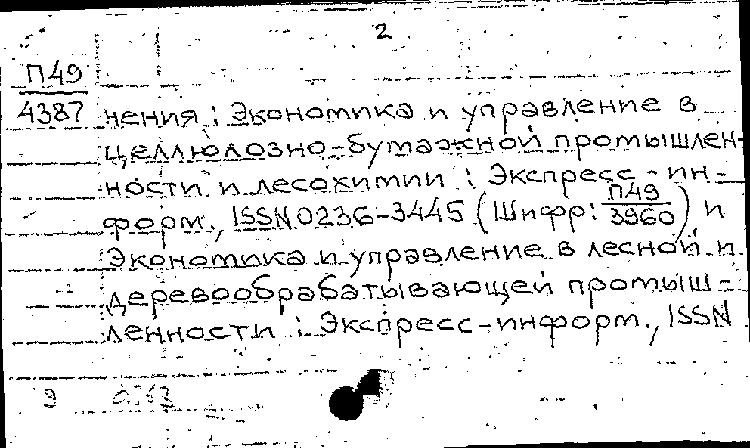 2
П49
4387 нения : Экономика и управление в
целлюлозно-бумажной промышлен-
ности и лесохимии : Экспресс-ин-
форм., ISSN 0236-3445 (Шифр: П49/3960) и
Экономика и управление в лесной и
деревообрабатывающей промыш-
ленности : Экспресс-информ., ISSN
9